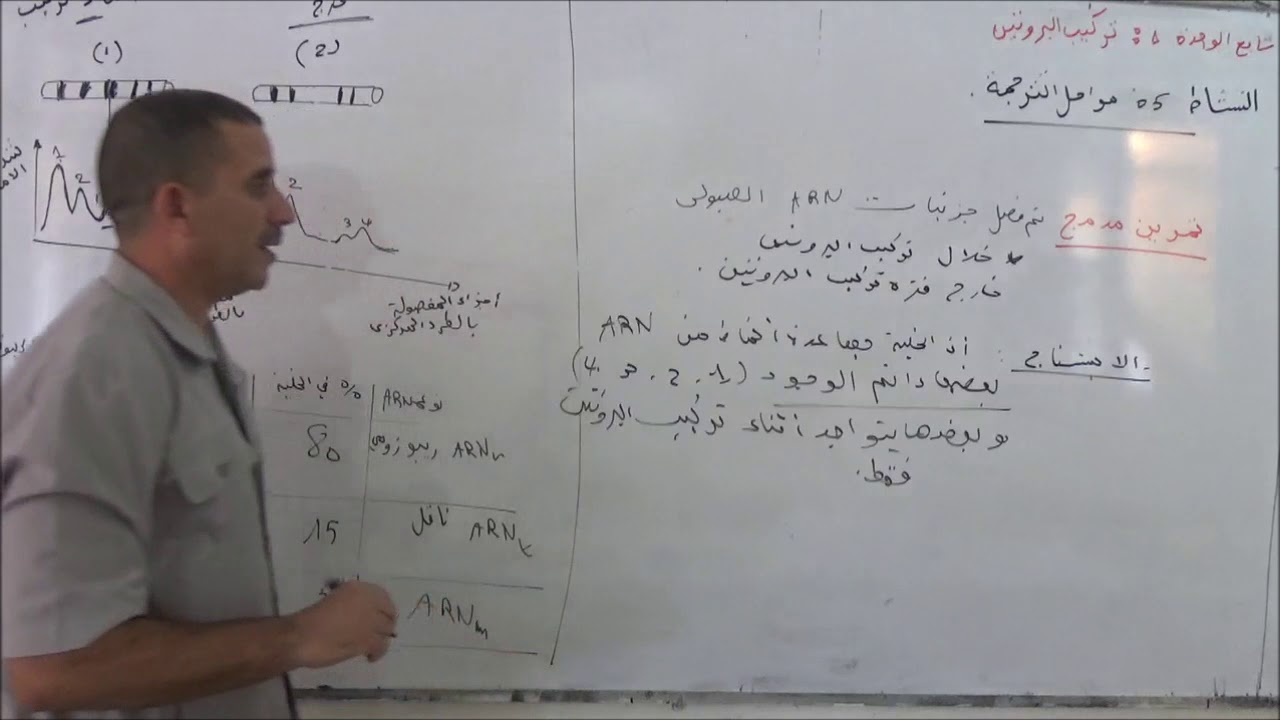 تابع الوحدة 1: تركيب البروتين
النشاط 05: عوامل الترجمة.
تمرين مدمج
تم فصل جزيئات ARN الهيولى
* خلال تركيب البروتين
خارج فترة تركيب البروتين.
الاستنتاج: أن الخلية بها عدة أنماط من ARN
بعضها دائم الوجود
و بعضها يتواجد أثناء تركيب البروتين
فقط.
(1)
(2)
1
2
2
3 4
أجزاء المفصولة
بالطرد المركزي
% في الخلية
نوع ARN
80
ARNr ريبوزومي
15
ARNt ناقل
ARNm